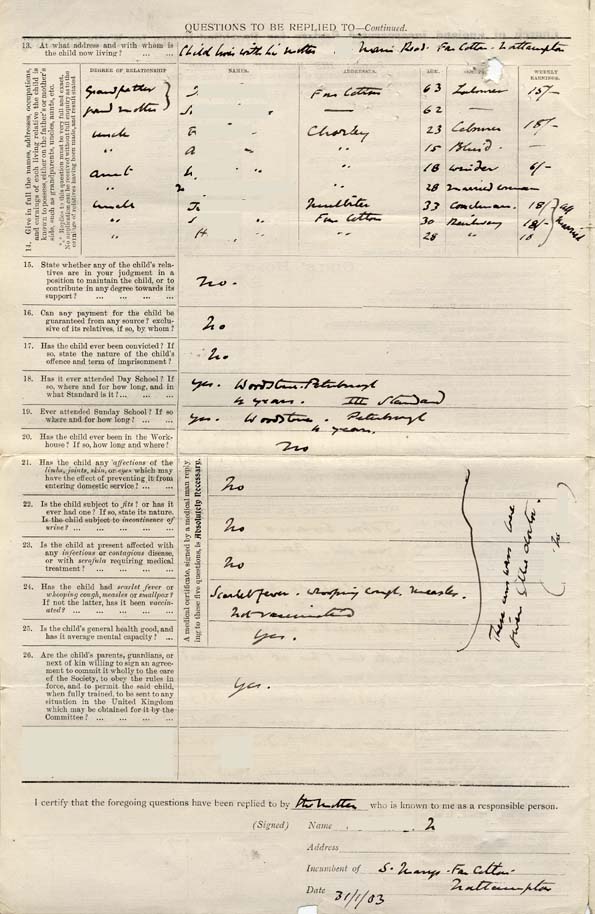 QUESTIONS TO BE REPLIED TO—Continued.
13. At what address and with whom is
the child now living? ... ...
Child lives with his mother. Main Road. Far Cotton. Northampton
14. Give in full the names, addresses, occupations,
and earnings of each living relative the child is
known to possess, either on the father's or mother's
side, such as grandparents, uncles, aunts, etc.
DEGREE OF RELATIONSHIP NAMES. ADDRESSES. AGE. WEEKLY
EARNINGS.
grandfather J. Far Cotton 63 Labourer 15/-
grandmother S. — 62 — —
uncle Chorley 23 18/-
" a " 15 Blind —
aunt " 18 winder 6/-
" " 28 married woman
uncle 33 Coachman 18/- all
" S " Far Cotton 30 Railway 18/- married
" H " 28 " 18
15. State whether any of the child's rela-
tives are in your judgment in a
position to maintain the child, or to
contribute in any degree towards its
support? ... ... ... ...
No.
16. Can any payment for the child be
guaranteed from any source? exclu-
sive of its relatives, if so, by whom?
No
17. Has the child ever been convicted? If
so, state the nature of the child's
offence and term of imprisonment?
No
18. Has it ever attended Day School? If
so, where and for how long, and in
what Standard is it? ... ... ...
Yes. Woodstone. Peterburgh
4 years. III Standard
19. Ever attended Sunday School? If so
where and for how long? ... ...
Yes. Woodstone. Peterburgh
4 years.
20. Has the child ever been in the Work-
house? If so, how long and where?
No
A medical certificate, signed by a medical man reply-
ing to these five questions, is Absolutely Necessary.
21. Has the child any affections of the
limbs, joints, skin, or eyes which may
have the effect of preventing it from
entering domestic service? ... ...
No
22. Is the child subject to fits? or has it
ever had one? If so, state its nature.
Is the child subject to incontinence of
urine? ... ... ... ... ...
No
23. Is the child at present affected with
any infectious or contagious disease,
or with scrofula requiring medical
treatment? ... ... ... ...
No
24. Has the child had scarlet fever or
whooping cough, measles or smallpox?
If not the latter, has it been vaccin-
ated? ... ... ... ... ...
Scarlet fever. Whooping cough. Measles.
Not vaccinated
25. Is the child's general health good, and
has it average mental capacity? ...
Yes.
These answers were
given by the doctor.
26. Are the child's parents, guardians, or
next of kin willing to sign an agree-
ment to commit it wholly to the care
of the Society, to obey the rules in
force, and to permit the said child,
when fully trained, to be sent to any
situation in the United Kingdom
which may be obtained for it by the
Committee? ... ... ... ...
Yes.
I certify that the foregoing questions have been replied to by the mother who is known to me as a responsible person.
(Signed) Name
Address
Incumbent of S. Marys. Far Cotton.
Northampton
Date 31/1/03